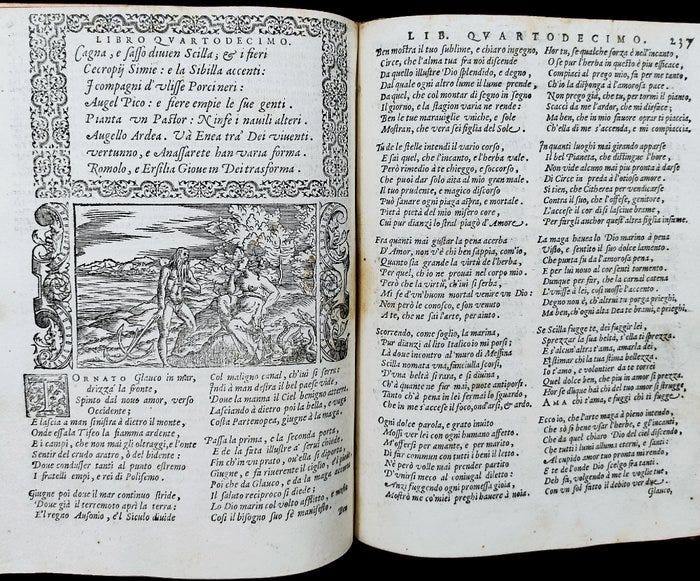 LIBRO QVARTODECIMO.
Cagna, e sasso diuien Scilla; & i fieri
Cecropij Simie: e la Sibilla accenti:
I compagni d'Vlisse Porci neri:
Augel Pico: e fiere empie le sue genti.
Pianta vn Pastor: Ninfe i nauili alteri.
Augello Ardea. Và Enea tra' Dei viuenti.
vertunno, e Anassarete han varia forma.
Romolo, e Ersilia Gioue in Dei trasforma.
TORNATO Glauco in mar,
drizza la fronte,
Spinto dal nouo amor, verso
Occidente;
E lascia a man sinistra à dietro il monte,
Onde essala Tifeo la fiamma ardente,
E i campi, che non mai gli oltraggi, e l'onte
Sentir del crudo aratro, ò del bidente:
Doue condusser tanti al punto estremo
I fratelli empi, e rei di Polifemo.
Giugne poi doue il mar continuo stride,
Doue già il terremoto aprì la terra:
E'l regno Ausonio, e'l Siculo diuide
Col maligno canal, ch'iui si serra:
Indi à man destra il bel paese vide,
Doue la manna il Ciel benigno atterra.
Lasciando à dietro poi la bella, e vaga
Costa Partenopea, giugne à la maga.
Passa la prima, e la seconda porta,
E de la fata illustre a' serui chiede,
Fin ch'in vn prato, ou'ella si diporta,
Giugne, e fà riuerente il ciglio, e'l piede.
Poi che da Glauco, e da la maga accorta
Il saluto reciproco si diede:
Lo Dio marin col volto afflitto, e mesto
Così il bisogno suo fè manifesto.
Ben
LIB. QVARTODECIMO. 237
Ben mostra il tuo sublime, e chiaro ingegno,
Circe, che l'alma tua fra noi discende
Da quello illustre Dio splendido, e degno,
Dal quale ogni altro lume il lume prende
Dal quel, che col montar di segno in segno
Il giorno, e la stagion varia ne rende:
Ben le tue marauiglie vniche, e sole
Mostran, che vera sei figlia del Sole.
Tu de le stelle intendi il vario corso,
E sai quel, che l'incanto, e l'herba vale.
Però rimedio à te chieggo, e soccorso,
Che puoi dar solo aita al mio gran male.
Il tuo prudente, e magico discorso
Può sanare ogni piaga aspra, e mortale.
Pietà pietà del mio misero core,
Cui pur dianzi lo stral piagò d'Amore.
Fra quanti mai gustar la pena acerba
D'Amor, non v'è chi ben sappia, com'io,
Quanto sia grande la virtù de l'herba:
Per quel, ch'io ne prouai nel corpo mio.
Però che la virtù, ch'iui si serba,
Mi fe d'vn'huom mortal venire vn Dio:
Non però le conosco, e son venuto
A te, che ne sai l'arte, per aiuto.
Scorrendo, come soglio, la marina,
Pur dianzi al lito Italico mi porsi:
Là doue incontro al muro di Messina
Scilla nomata vna fanciulla scorsi,
D'vna beltà sì rara, e sì diuina,
Ch'à quante ne fur mai, puote antiporsi.
Tanto ch'à pena in lei fermai lo sguardo,
Che in me s'accese il foco, ond'arsi, & ardo.
Ogni dolce parola, e grato inuito
Mossi ver lei con ogni humano affetto.
M'offersi per amante, e per marito,
Di fur commun con tutti i beni il letto.
Nè però volle mai prender partito
D'vnirsi meco al coniugal diletto:
Anzi fuggendo ogni promessa gioia,
Mostrò me co' miei preghi hauere à noia.
Hor tu, se qualche forza è nell'incanto,
O se pur l'herba in questo è più efficace,
Compiaci al prego mio, fa per me tanto,
Ch'io la disponga à l'amorosa pace.
Non prego già, che tu, per tormi il pianto,
Scacci da me l'ardor, che mi disface;
Ma ben, che in mio fauore opra ti piaccia,
Ch'ella di me s'accenda, e mi compiaccia.
In quanti luoghi mai girando apparse
Il bel Pianeta, che distingue l'hore,
Non vide alcuno mai piu pronta à darse
Di Circe in preda à l'otioso amore.
Si tien, che Citherea per vendicarse
Contra il suo, che l'offese, genitore,
L'accese il cor di sì lasciue brame,
Per fargli anchor quest'altra figlia infame.
La maga hauea lo Dio marino à pena
Visto, e sentito il suo dolce lamento,
Che punta fu da l'amorosa pena,
E per lui nouo al cor sentì tormento.
Dunque per far, che la carnal catena
L'vnisse à lei, così mosse l'accento.
Degno non è, ch'altrui tu porga prieghi,
Ma ben, ch'ogni alta Dea te brami, e prieghi.
Se Scilla fugge te, dei fuggir lei,
Sprezzar la sua beltà, s'ella ti sprezza.
E s'alcun'altra t'ama, amarla dei,
Et stimar chi la tua stima bellezza.
Io t'amo, e volontier da te torrei
Quel dolce ben, che più in amor si prezza.
Hor se brami gioir, fa che si strugga.
AMA chi t'ama, e fuggi chi ti fugge.
Ecco io, che l'arte maga à pieno intendo,
Che sò sì bene vsar l'herbe, e gl'incanti,
Che da quel chiaro Dio del ciel discendo,
Che tutti i lumi alluma eterni, e santi:
Al cupido amor tuo pronta mi rendo,
E te de l'onde Dio scelgo fra tanti.
Deh fa, volgendo à me le voglie tue,
Con vn sol fatto il debito ver due.
Glauco,